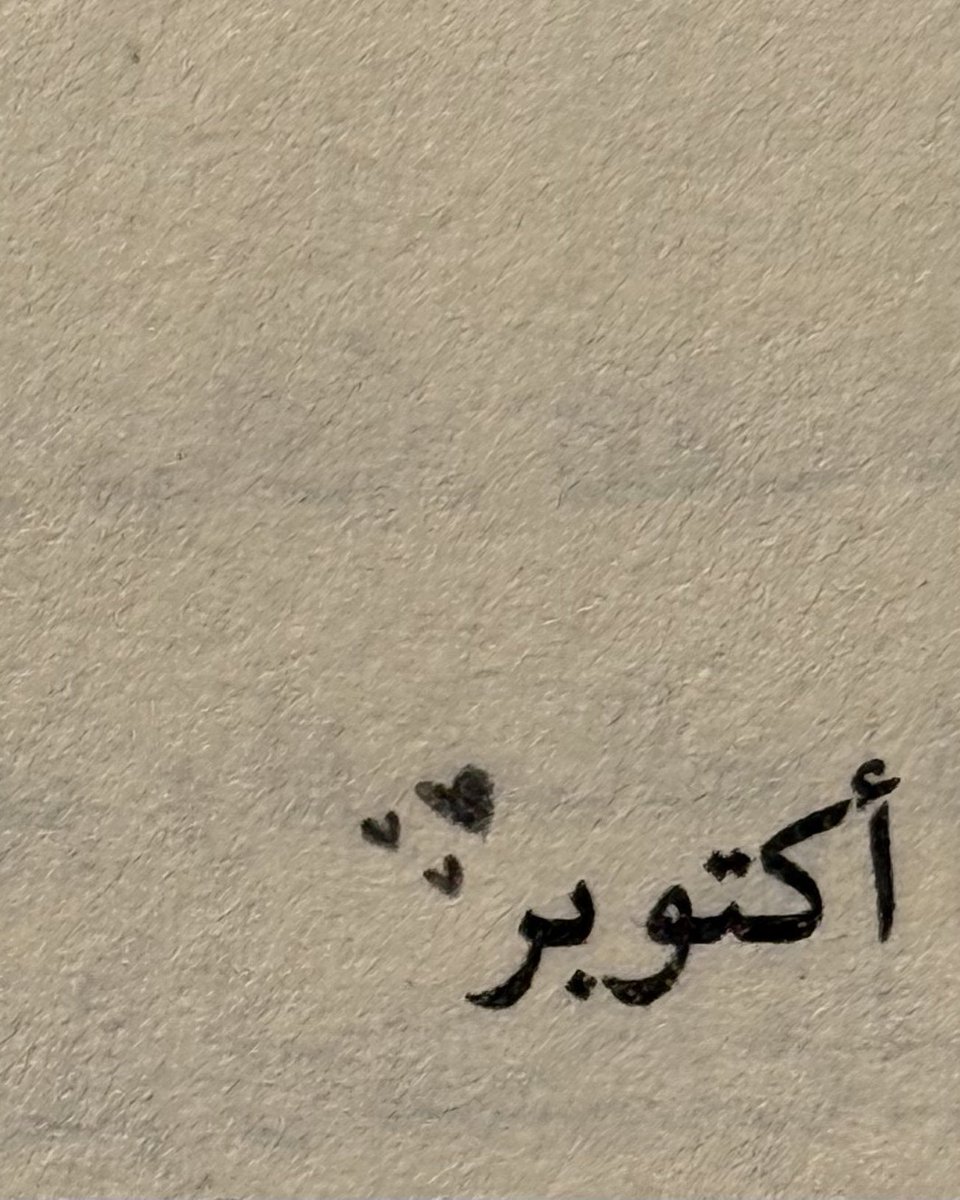 أكتوبر